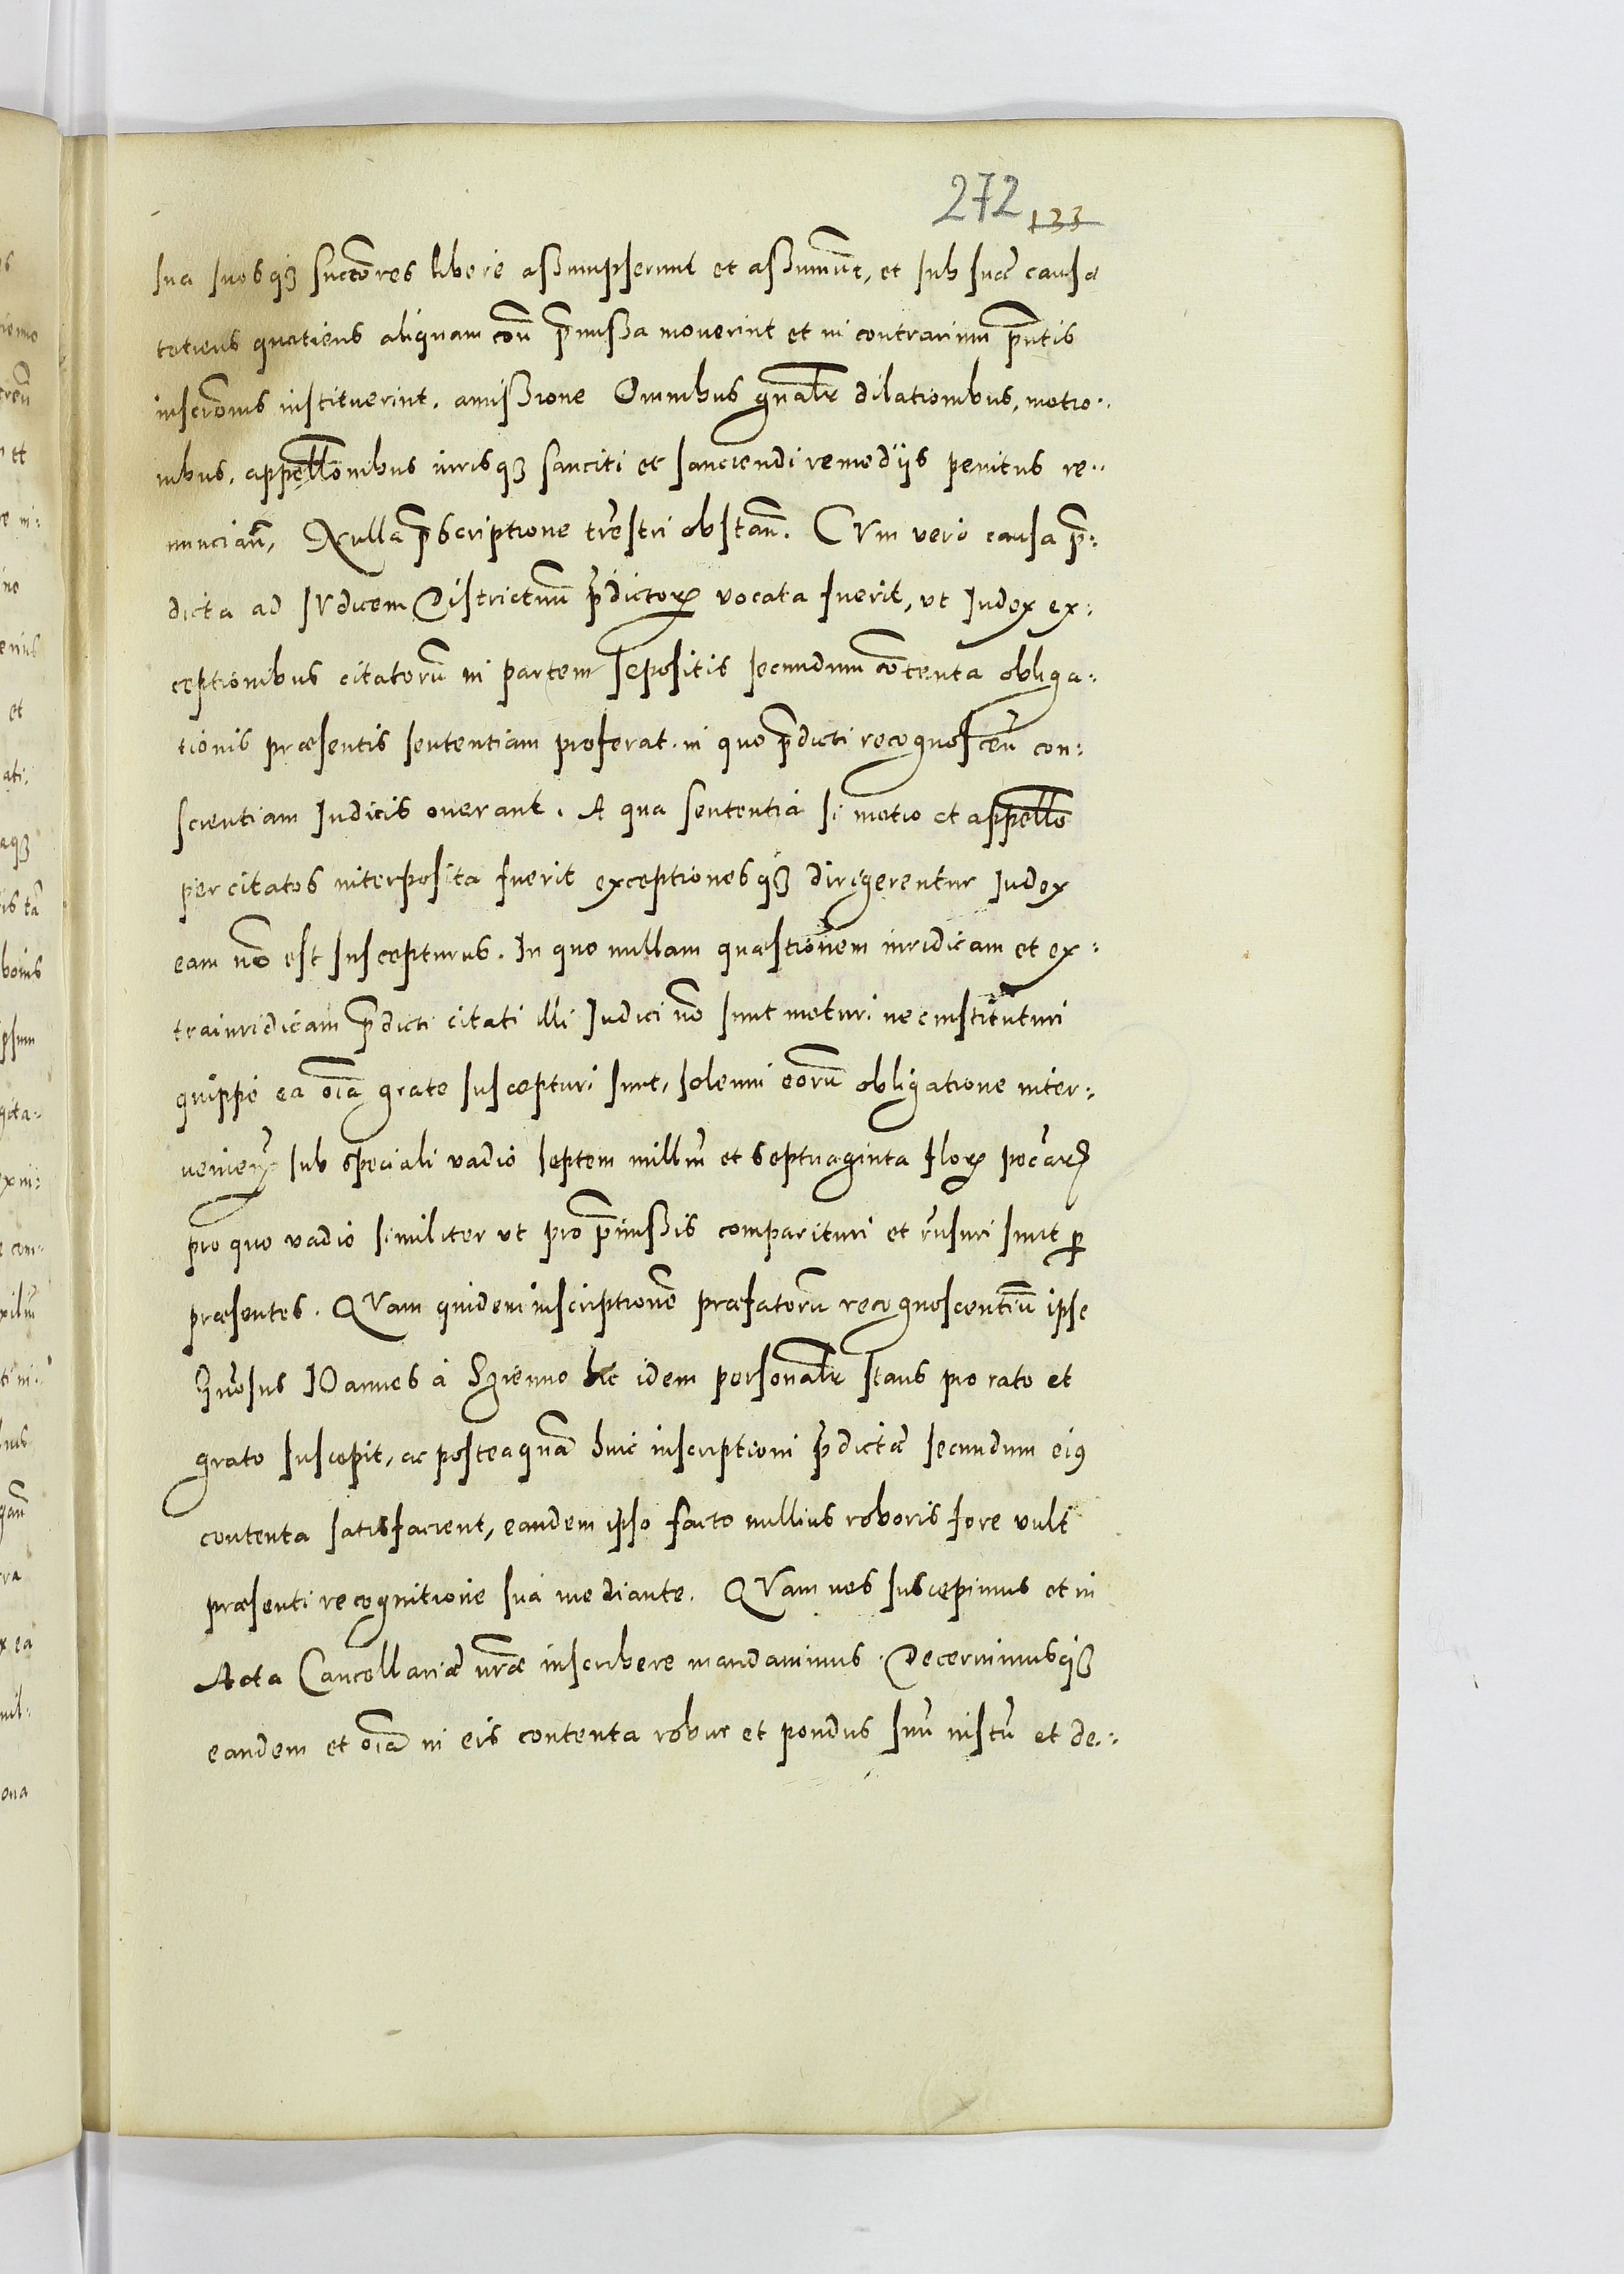 272 133
sua suosq₃ suctōres libere assumpserunt et assumūt, et sub suæ causæ
totiens quotiens aliquam cōn p̄missa moverint et in contrarium p̄ntis
inscrōnis instituerint, amissione Omnibus gn̄alr̄ dilationibus, motio..
nibus, appell̄onibus iurisq₃ sanciti et sanciendi remedijs penitus re..
nuncian̄, Nulla p̄scriptione tr̄estri obstan̄. CVm vero causa p̄:
dicta ad IVdicem Districtuum p̄dictoꝝ vocata fuerit, ut Iudex ex:
ceptionibus citatorū in partem sepositis secundum cōtenta obliga:
tionis præsentis sententiam proferat. in quo p̄dicti recognoscēn con:
scientiam Iudicis onerant. A qua sententia si motio et appell̄o
per citatos interposita fuerit exceptionesq₃ dirigerentur Iudex
eam nō est suscepturus. In quo nullam quæstionem iuridicam et ex:
traiuridicam p̄dicti citati illi Iudici nō sunt moturi nec instituturi
quippe ea oīa grate suscepturi sunt, solenni eorū obligatione inter:
venien̄ sub speciali vadio septem milliū et septuaginta floꝝ pecūaꝝ
pro quo vadio similiter ut pro p̄missis comparituri et r̄nsuri sunt ꝑ
præsentes. QVam quidem inscriptionē præfatorū recognoscentiū ipse
Gn̄osus IOannes à Szienno hic idem personalr̄ stans pro rato et
grato suscepit, ac posteaquā huic inscriptioni p̄dictæ secundum eiꝰ
contenta satisfacient, eandem ipso facto nullius roboris fore vult
præsenti recognitione sua mediante. QVam nos suscepimus et in
Acta Cancellariæ nr̄æ inscribere mandavimus. Decernimusq₃
eandem et oīa in eis contenta robur et pondus suū iustū et de..